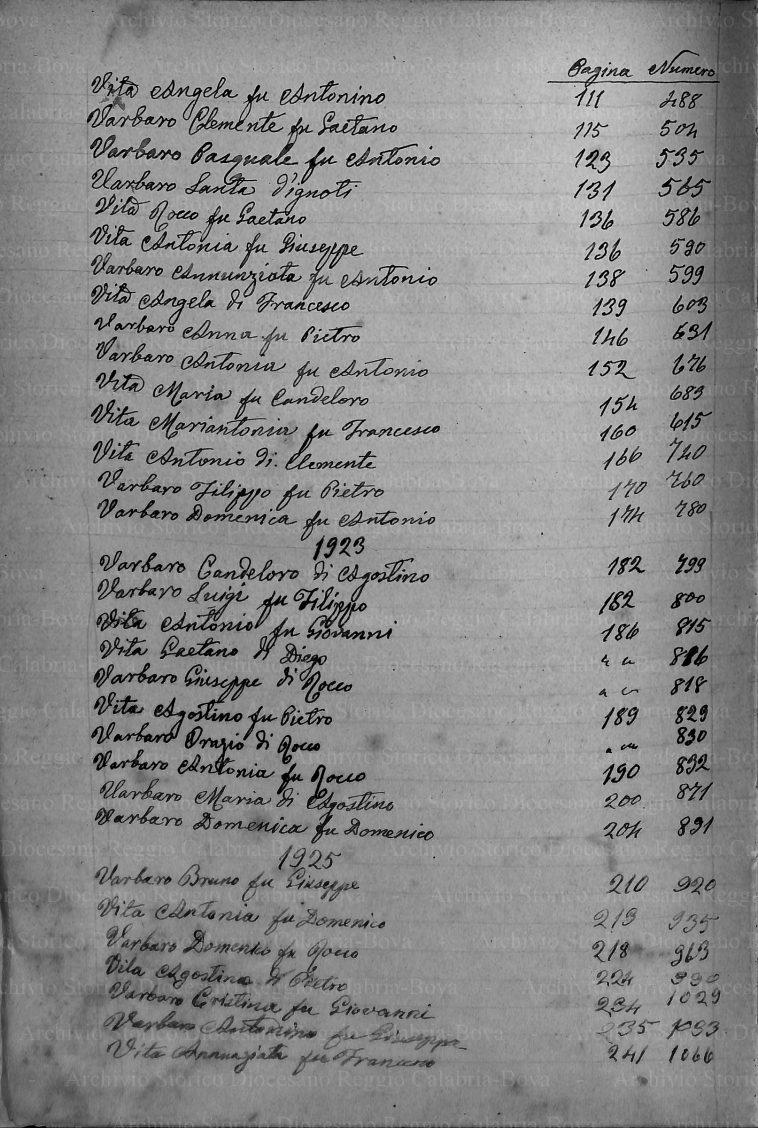 Pagina Numero
Vita Angela fu Antonino 111 488
Varbaro Clemente fu Gaetano 115 504
Varbaro Pasquale fu Antonio 123 535
Varbaro Santa d'ignoti 131 565
Vita Rocco fu Gaetano 136 586
Vita Antonia fu Giuseppe 136 590
Varbaro Annunziata fu Antonio 138 599
Vita Angela di Francesco 139 603
Varbaro Anna fu Pietro 146 631
Varbaro Antonia fu Antonio 152 676
Vita Maria fu Candeloro 154 683
Vita Mariantonia fu Francesco 160 615
Vita Antonio di Clemente 166 740
Varbaro Filippo fu Pietro 170 760
Varbaro Domenica fu Antonio 174 780
1923
Varbaro Candeloro di Agostino 182 799
Varbaro Luigi fu Filippo 182 800
Vita Antonio fu Giovanni 186 815
Vita Gaetano di Diego 816
Varbaro Giuseppe di Rocco 818
Vita Agostino fu Pietro 189 829
Varbaro Orazio di Rocco 830
Varbaro Antonia fu Rocco 190 832
Varbaro Maria di Agostino 200 871
Varbaro Domenica fu Domenico 204 891
1925
Varbaro Bruno fu Giuseppe 210 920
Vita Antonia fu Domenico 213 935
Varbaro Domenico fu Rocco 218 963
Vita Agostino di Pietro 224 990
Varbaro Cristina fu Giovanni 234 1029
Varbaro Antonino fu Giuseppe 235 1033
Vita Annunziata fu Francesco 241 1066
Archivio Storico Diocesano Reggio Calabria-Bova